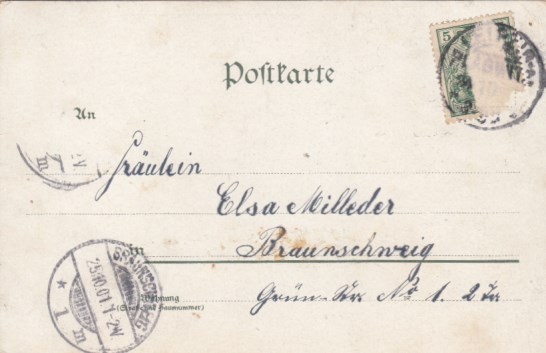 5
Postkarte
An
Fräulein
Elsa Milleder
in
Braunschweig
Wohnung
(Straße und Hausnummer)
Grün-Str. No 1. 2
25.10.01. 1-2N
* 1 *